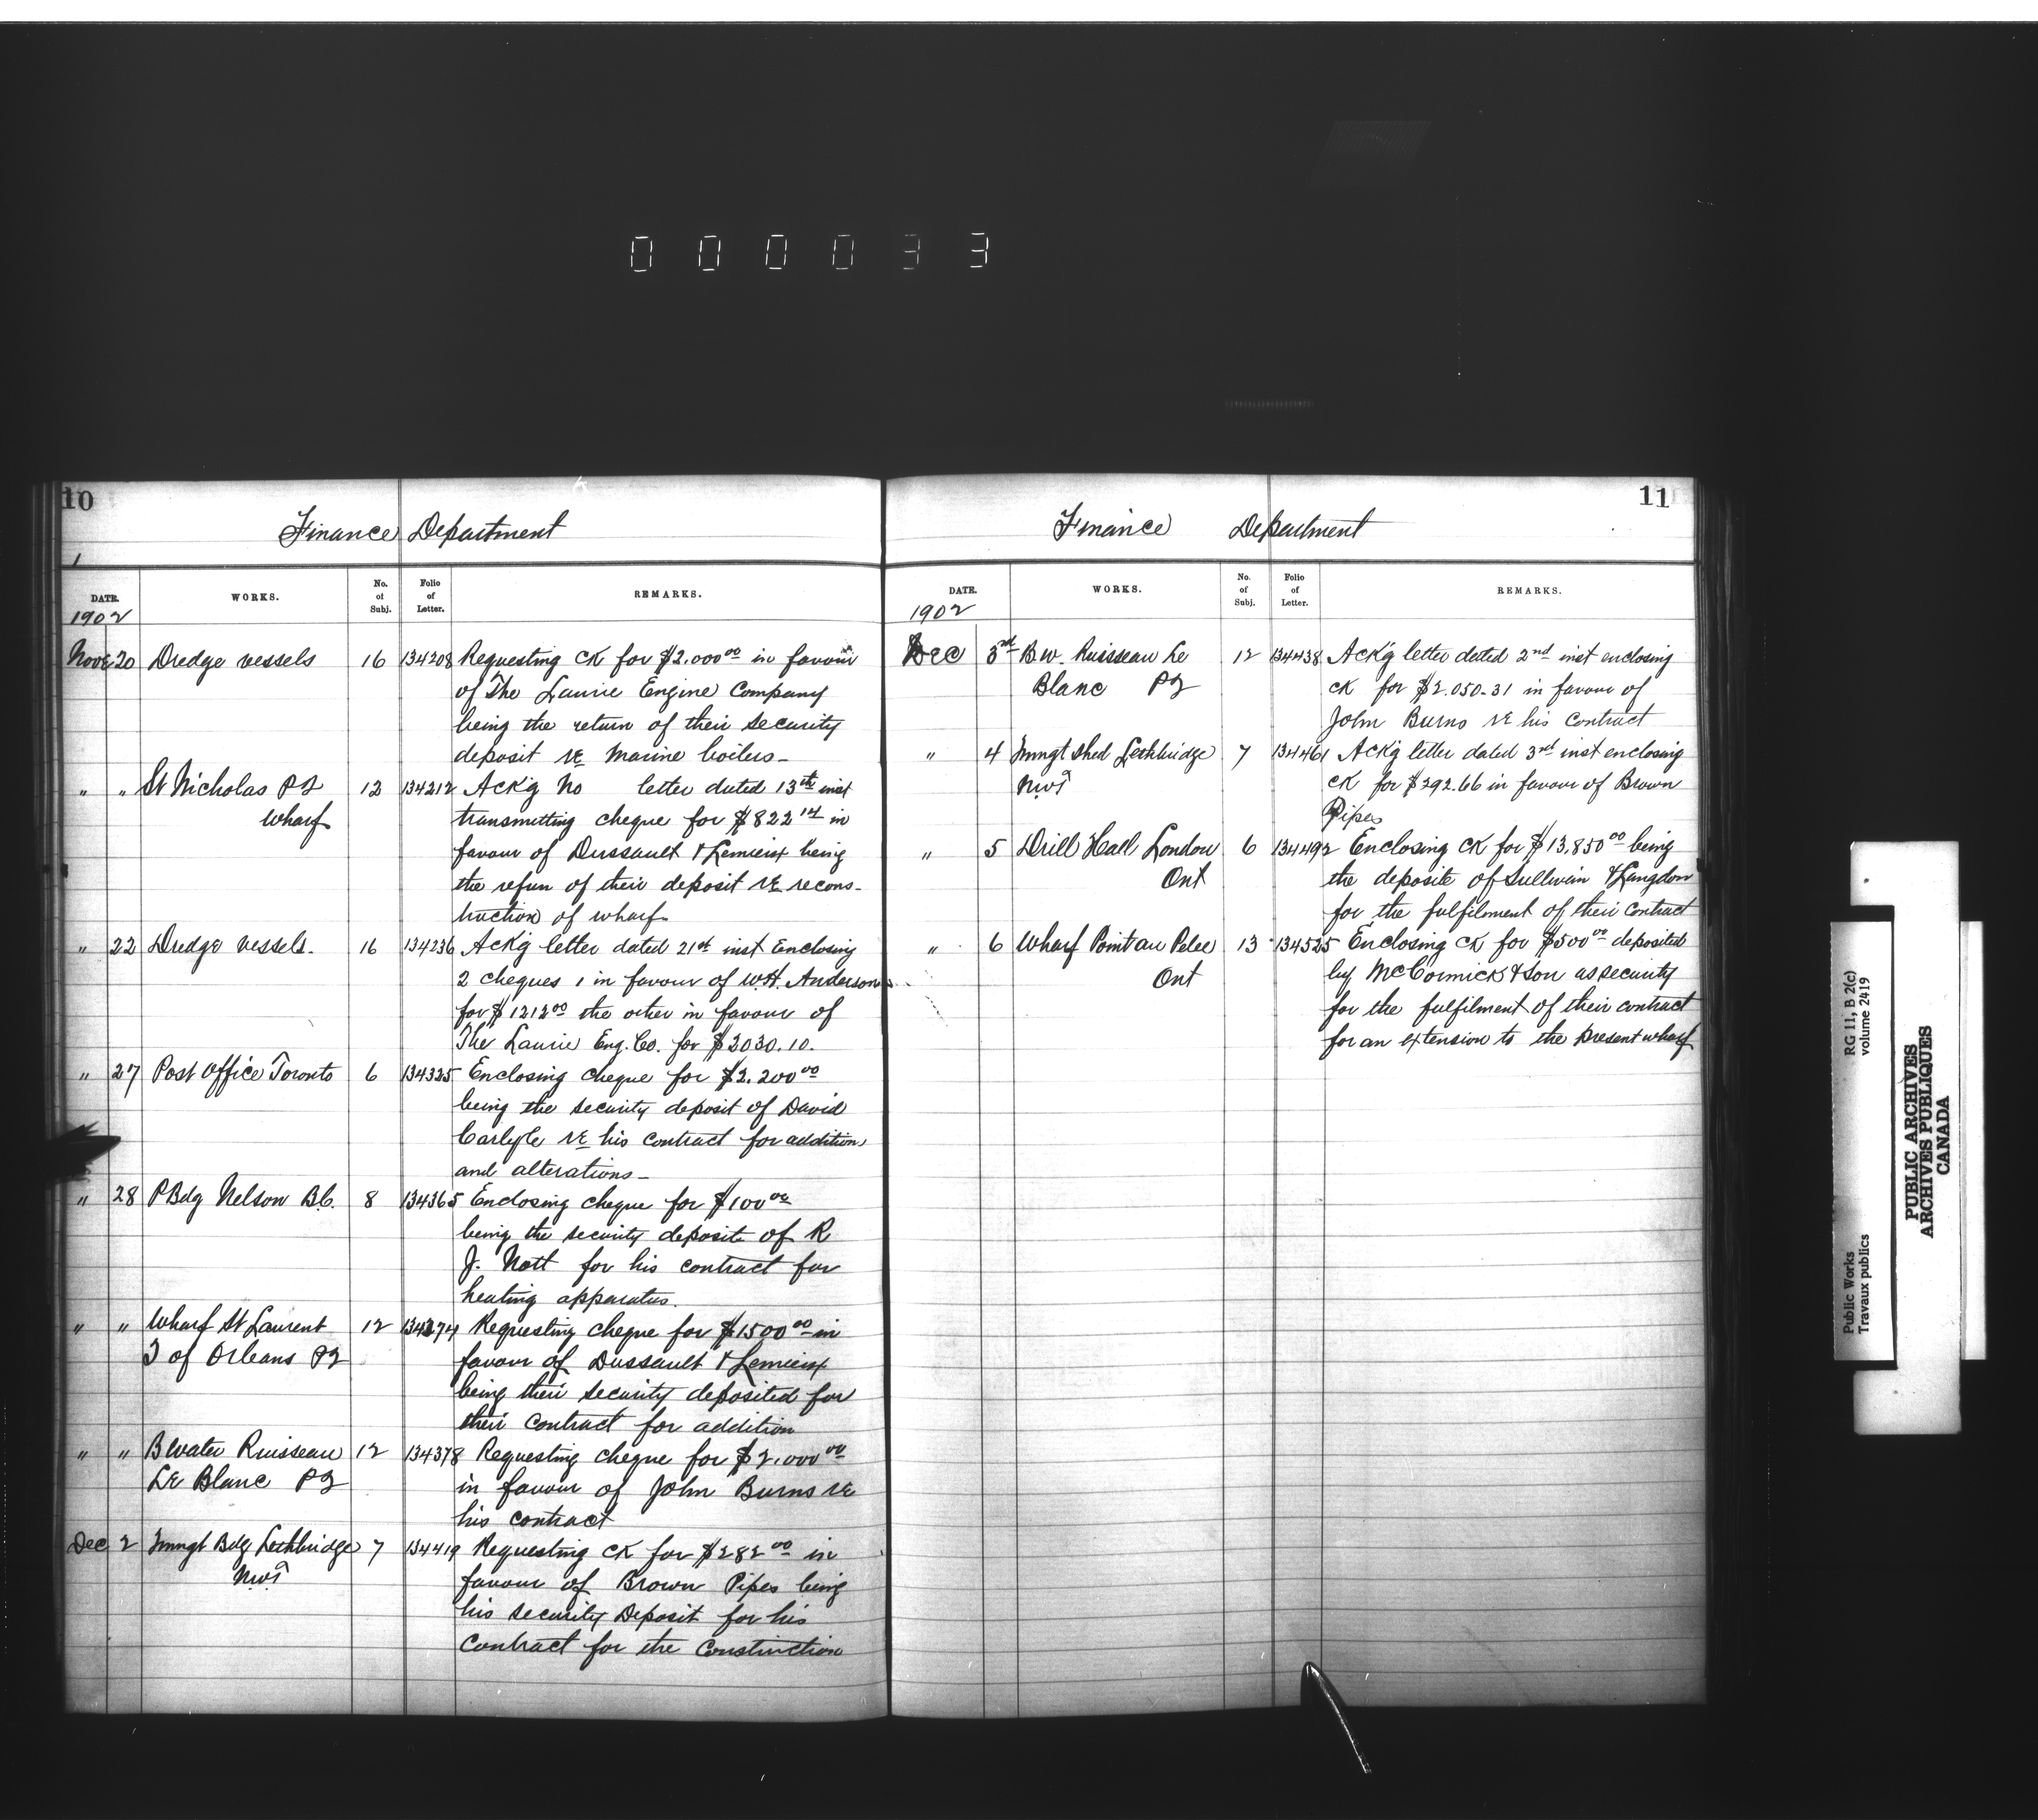 000033
10
Finance Department
DATE. WORKS. No. of Subj. Folio of Letter. REMARKS.
1902
Nove 20 Dredge vessels 16 134208 Requesting CK for $2.000 00 in favour
of The Laurie Engine Company
being the return of their security
deposit re Marine boilers-
" " St Nicholas PQ 12 134212 Ackg No letter dated 13th inst
Wharf transmitting cheque for $822 14 in
favour of Dussault & Lemieux being
the refun of their deposit re recons-
truction of wharf
" 22 Dredge vessels. 16 134236 Ackg letter dated 21st inst Enclosing
2 cheques 1 in favour of W.H. Anderson
for $1212 00 the other in favour of
The Laurie Eng. Co. for $2030.10.
" 27 Post Office Toronto 6 134325 Enclosing cheque for $2.200 00
being the security deposit of David
Carlyle re his contract for addition
and alterations-
" 28 P Bdg Nelson B.C. 8 134365 Enclosing cheque for $100 00
being the security deposite of R
J. Nott for his contract for
heating apparatus.
" " Wharf St Laurent 12 134374 Requesting cheque for $1500 00 in
I of Orleans PQ favour of Dussault & Lemieux
being their security deposited for
their contract for addition
" " B Water Ruisseau 12 134378 Requesting cheque for $2.000 00
Le Blanc PQ in favour of John Burns re
his contract
Dec 2 Immgt Bdg Lethbridge 7 134419 Requesting CK for $282 00 in
NWT favour of Brown Pipes being
his security Deposit for his
Contract for the Construction
11
Finance Department
DATE. WORKS. No. of Subj. Folio of Letter. REMARKS.
1902
Dec 3rd B.W. Ruisseau Le 12 134438 Ackg letter dated 2nd inst enclosing
Blanc PQ CK for $2.050.31 in favour of
John Burns re his Contract
" 4 Immgt Shed Lethbridge 7 134461 Ackg letter dated 3rd inst enclosing
NWT CK for $292.66 in favour of Brown
Pipes
" 5 Drill Hall London 6 134492 Enclosing CK for $13.850 00 being
Ont the deposite of Sullivan & Langdon
for the fulfilment of their contract
" 6 Wharf Point au Pelee 13 134525 Enclosing CK for $500 00 deposited
Ont by McCormick & Son as security
for the fulfilment of their contract
for an extension to the present wharf
Public Works
Travaux publics
RG 11, B 2(c)
volume 2419
PUBLIC ARCHIVES
ARCHIVES PUBLIQUES
CANADA